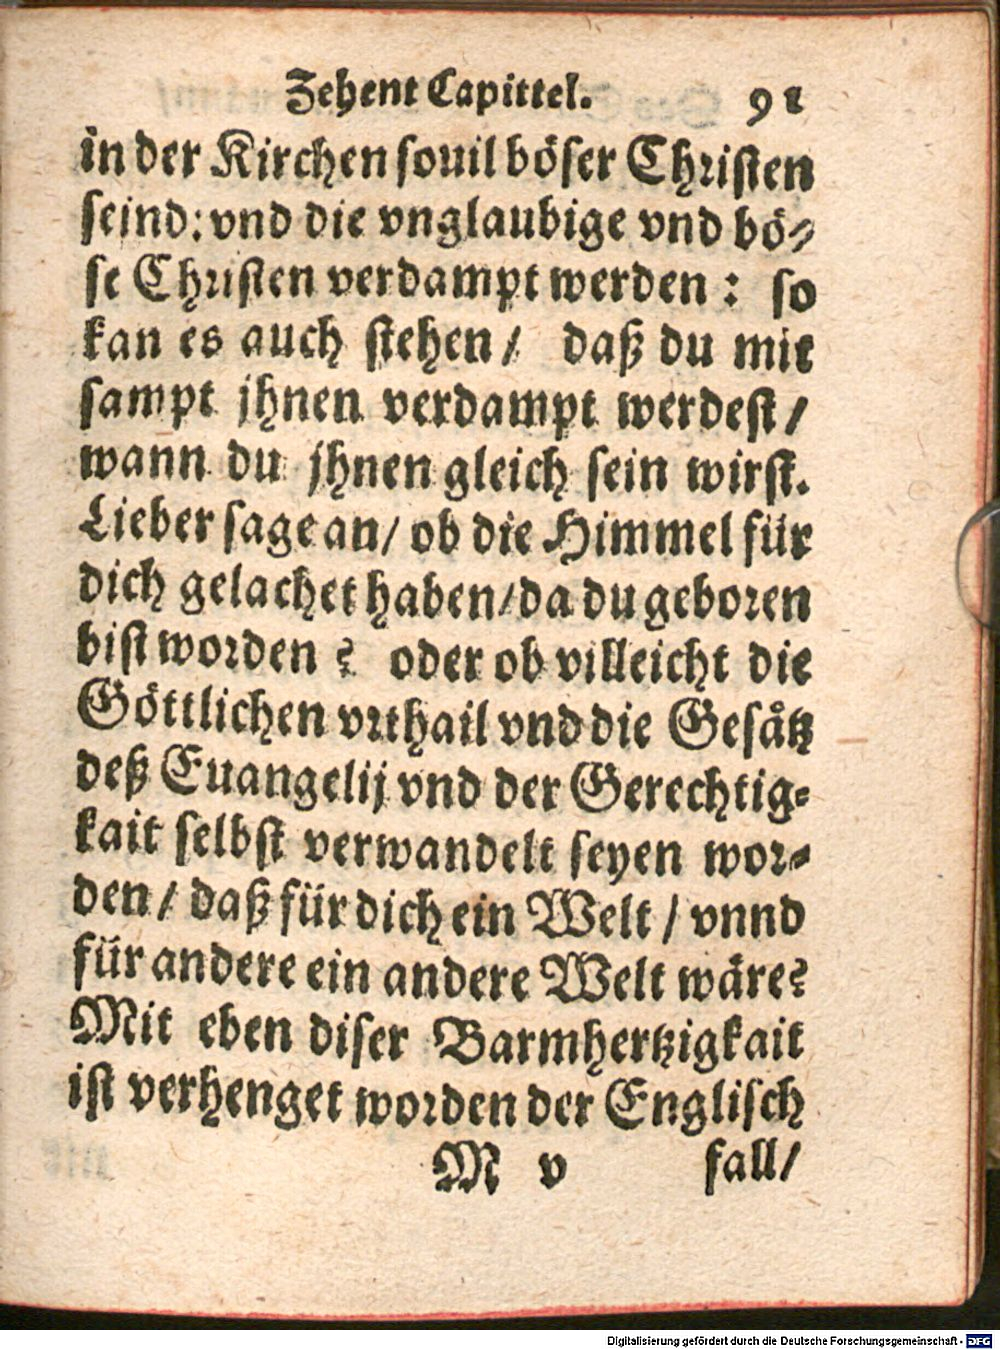 Zehent Capittel. 91
in der Kirchen souil böser Christen
seind: vnd die vnglaubige vnd bö-
se Christen verdampt werden: so
kan es auch stehen/ daß du mit
sampt jhnen verdampt werdest/
wann du jhnen gleich sein wirst.
Lieber sage an/ ob die Himmel für
dich gelachet haben/ da du geboren
bist worden? oder ob villeicht die
Göttlichen vrthail vnd die Gesätz
deß Euangelij vnd der Gerechtig-
kait selbst verwandelt seyen wor-
den/ daß für dich ein Welt/ vnnd
für andere ein andere Welt wäre?
Mit eben diser Barmhertzigkait
ist verhenget worden der Englisch
M v fall/
Digitalisierung gefördert durch die Deutsche Forschungsgemeinschaft - DFG